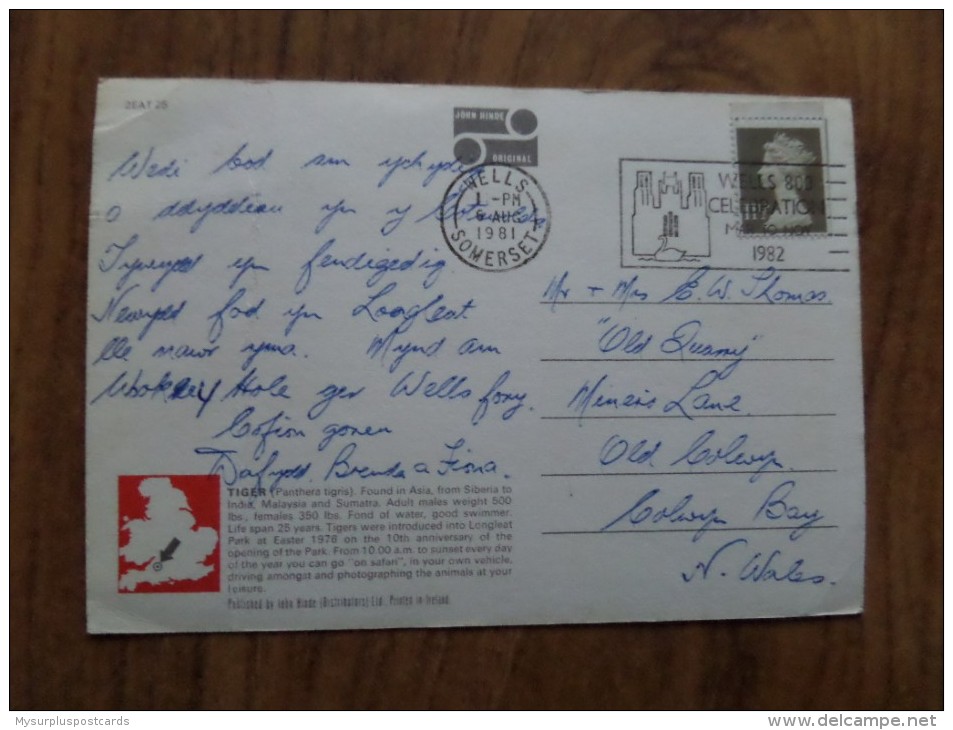 2EAT 25
JOHN HINDE
ORIGINAL
WELLS
1 - PM
6 AUG
1981
SOMERSET
WELLS 800
CELEBRATION
MAY TO NOV
1982
Wedi bod am ychydig
o ddyddiau yn y Cotswolds
Tywydd yn fendigedig
Newydd fod yn Longleat
lle mawr yma. Mynd am
Wookey Hole ger Wells fory.
Cofion gorau
Dafydd Brenda a Fiona.
Mr + Mrs E. W. Thomas
"Old Quarry"
Miners Lane
Old Colwyn
Colwyn Bay
N. Wales.
TIGER (Panthera tigris). Found in Asia, from Siberia to
India, Malaysia and Sumatra. Adult males weight 500
lbs., females 350 lbs. Fond of water, good swimmer.
Life span 25 years. Tigers were introduced into Longleat
Park at Easter 1978 on the 10th anniversary of the
opening of the Park. From 10.00 a.m. to sunset every day
of the year you can go "on safari", in your own vehicle,
driving amongst and photographing the animals at your
leisure.
Published by John Hinde (Distributors) Ltd. Printed in Ireland.
Mysurpluspostcards
www.delcampe.net